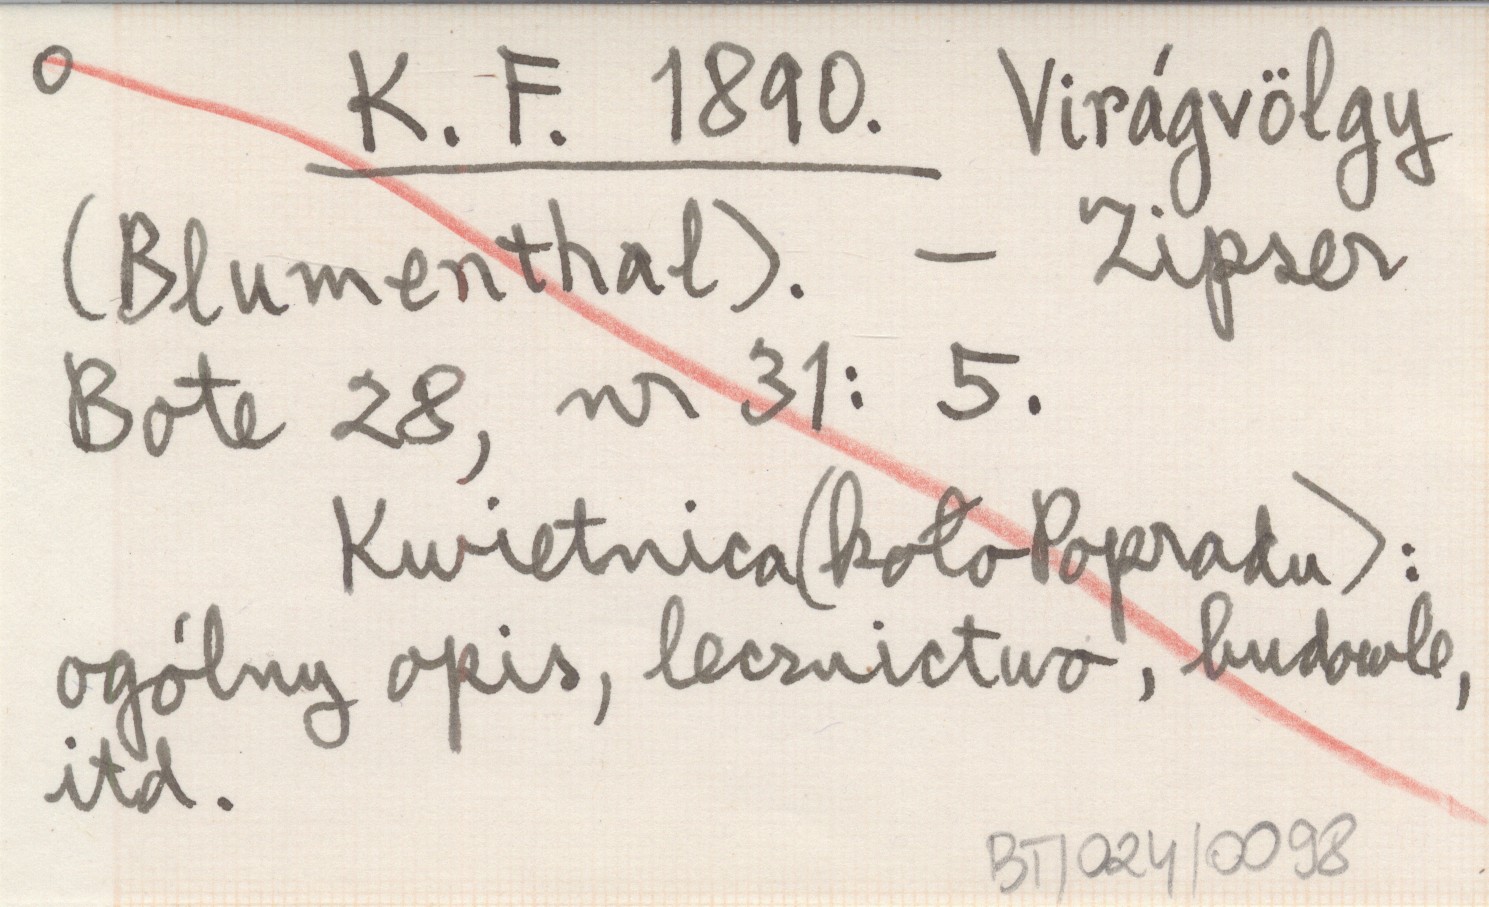 K. F. 1890. Virágvölgy
(Blumenthal). – Zipser
Bote 28, nr 31: 5.
Kwietnica (koło Popradu):
ogólny opis, lecznictwo, budowle,
itd.
BT/024/0098